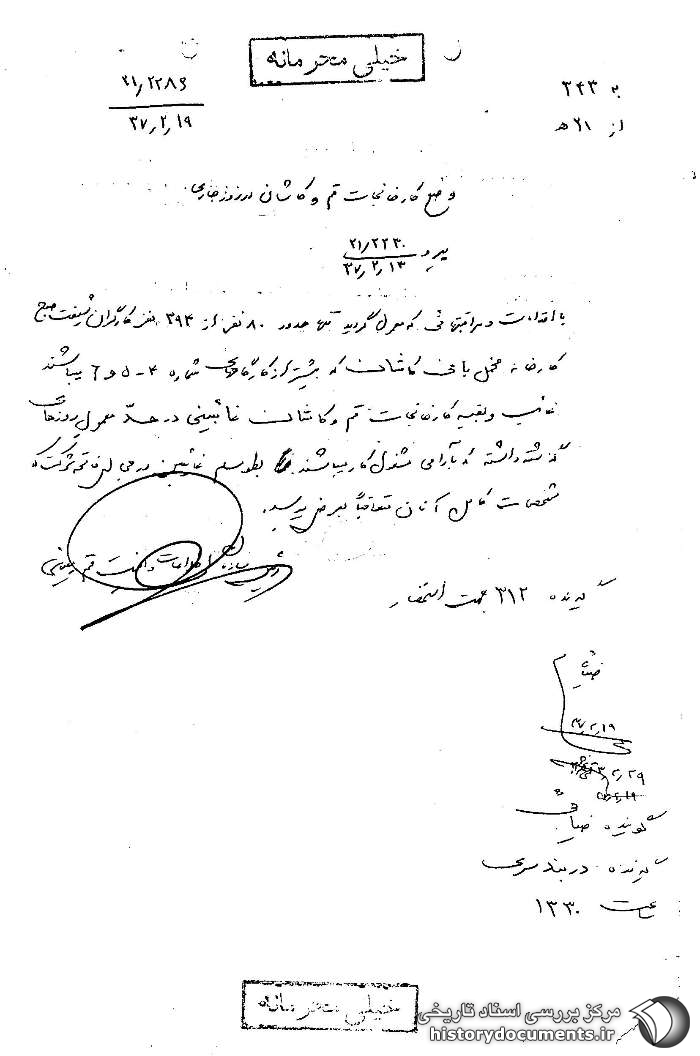 خیلی محرمانه
به ۳۴۳
از ۲۱ ه‍
۲۱/۲۲۸۶
۳۷/۲/۱۹
وضع کارخانجات قم و کاشان در روز جاری
پیرو ۲۱/۲۲۳۰
۳۷/۲/۱۳
با اقدامات و مراقبتهائی که معمول گردید تنها حدود ۸۰ نفر از ۳۹۳ نفر کارگران شیفت صبح
کارخانه مخمل بافی کاشان که بیشتر از کارگاههای شماره ۴-۵ و ۶ میباشند
غائب و بقیه کارخانجات قم و کاشان غائبینی در حدّ معمول روزهای
گذشته داشته که بآرامی مشغول کار میباشند بطور مسلم غائبین در شرکت
مشخصات کامل آنان متعاقباً بعرض میرسد.
رئیس سازمان اطلاعات و امنیت قم معینی
گیرنده ۳۱۲ جهت استحضار
۳۷/۲/۱۹
گوینده ضیائی
گیرنده دربندسری
ساعت ۱۳۳۰
خیلی محرمانه
مرکز بررسی اسناد تاریخی
historydocuments.ir